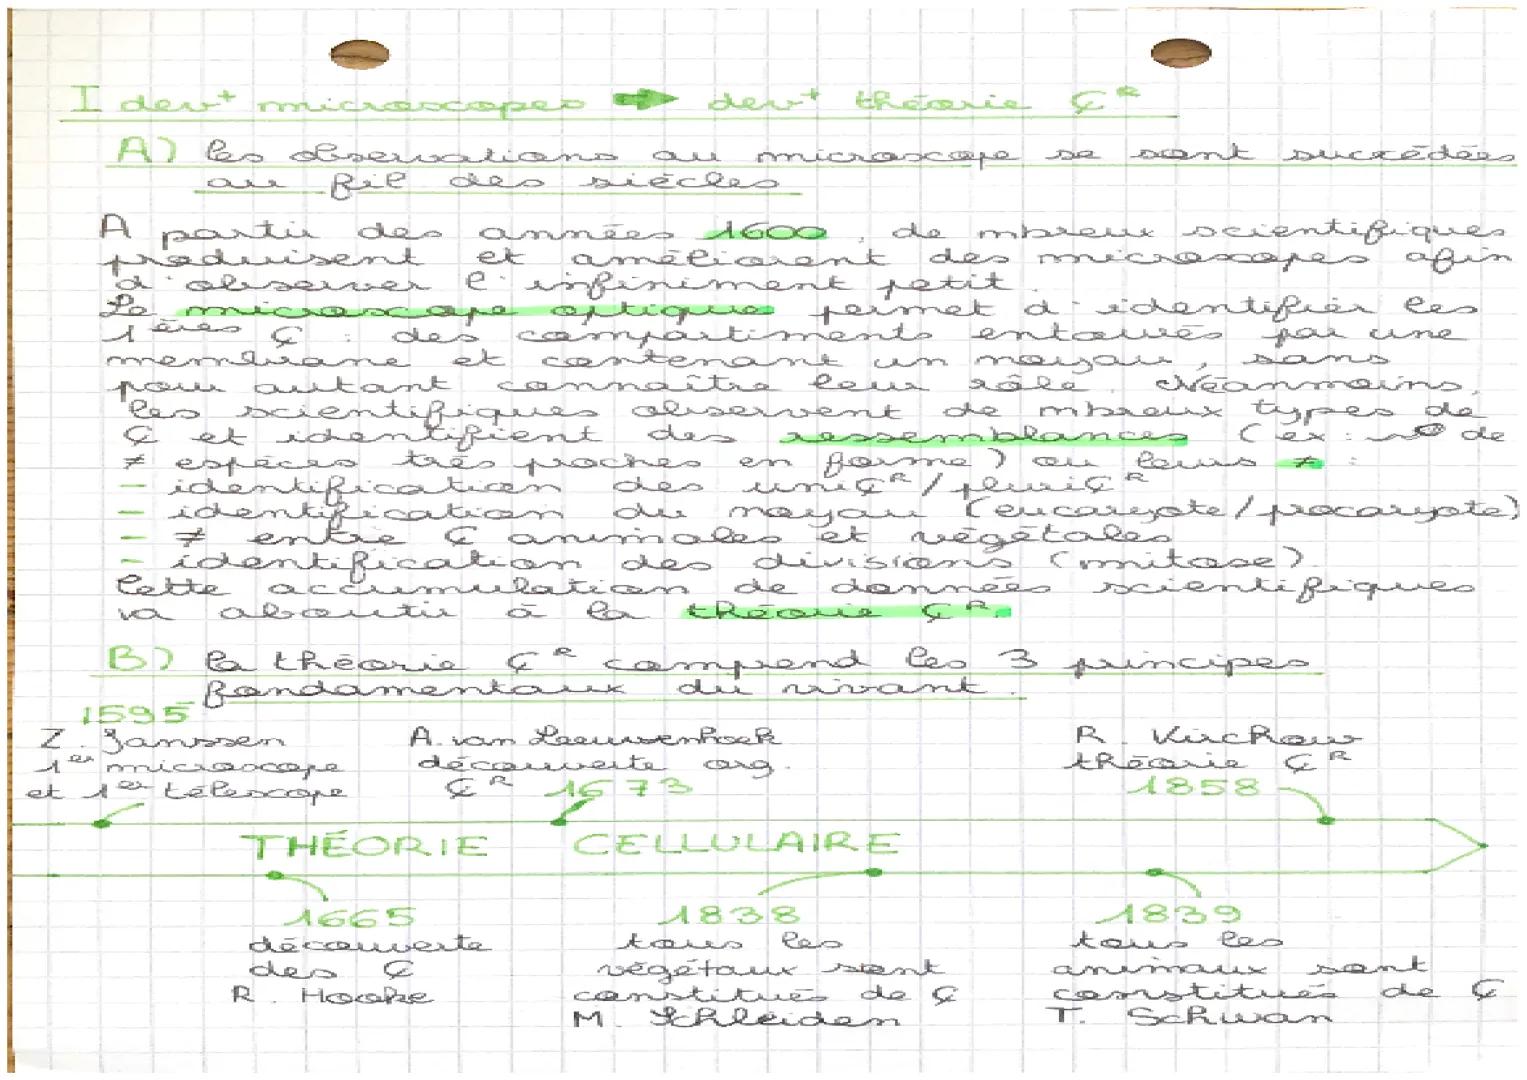 I devt microscopes ➡ devt théorie ȼR
A) les observations au microscope se sont succédées
au fil des siècles
A partir des années 1600, de mbreux scientifiques
produisent et améliorent des microscopes afin
d'observer l'infiniment petit.
Le microscope optique permet d'identifier les
1ères ȼ : des compartiments entourés par une
membrane et contenant un noyau, sans
pour autant connaître leur rôle. Néanmoins,
les scientifiques observent de mbreux types de
ȼ et identifient des ressemblances (ex : de
≠ espèces très proches en forme) ou leurs ≠ :
- identification des uniȼR/pluriȼR
- identification du noyau (eucaryote/procaryote)
- ≠ entre ȼ animales et végétales
- identification des divisions (mitose).
Cette accumulation de données scientifiques
va aboutir à la théorie ȼR.
B) la théorie ȼR comprend les 3 principes
fondamentaux du vivant.
1595
Z. Janssen
1er microscope
et 1er télescope
A. van Leeuwenhoek
découverte org.
ȼR 1673
R. Virchow
théorie ȼR
1858
THÉORIE CELLULAIRE
1665
découverte
des ȼ
R. Hooke
1838
tous les
végétaux sont
constitués de ȼ
M. Schleiden
1839
tous les
animaux sont
constitués de ȼ
T. Schwan